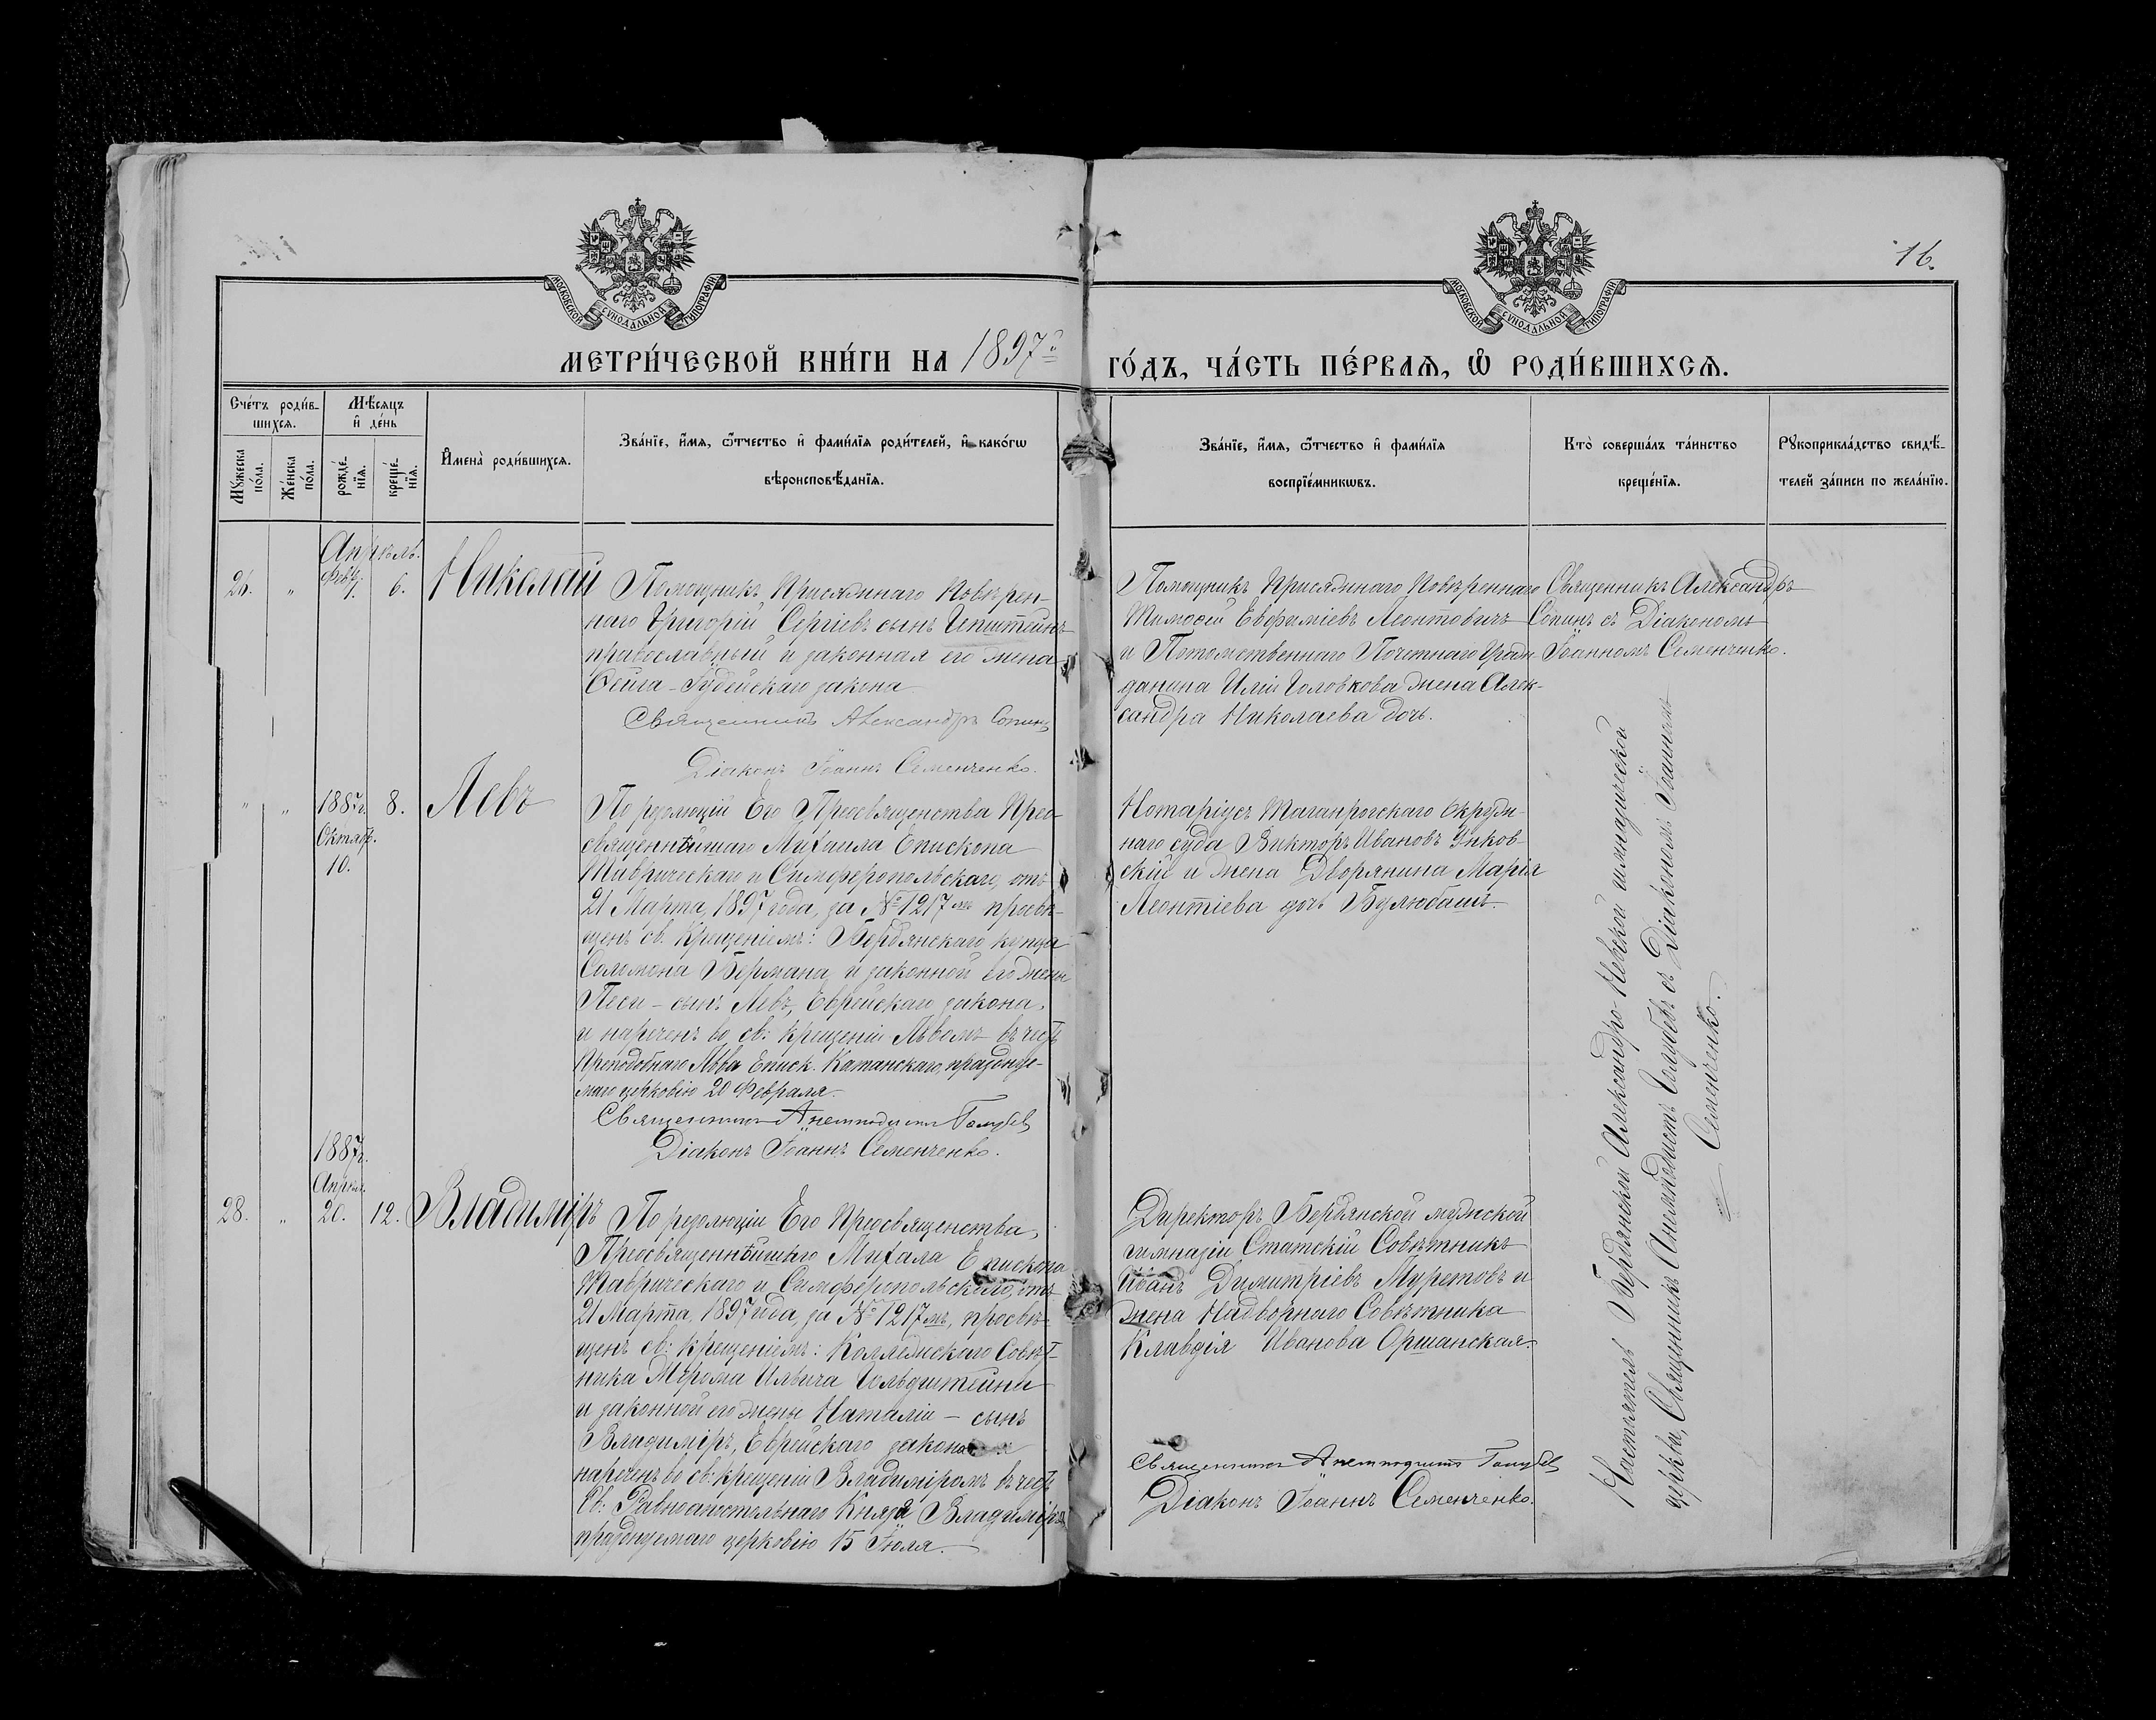 16.
МОСКОВСКОЙ СѴНОДАЛЬНОЙ ТИПОГРАФІИ.
МОСКОВСКОЙ СѴНОДАЛЬНОЙ ТИПОГРАФІИ.
МЕТРИ́ЧЕСКОЙ КНИ́ГИ НА 1897й ГО́ДЪ, ЧА́СТЬ ПЕ́РВАѦ, Ѡ҆ РОДИ́ВШИХСѦ.
Сче́тъ роди́в-
шихсѧ.
Мѣ́сяцъ
и҆ де́нь
Мꙋ́жеска
по́ла.
Же́нска
по́ла.
рожде́-
нїѧ.
креще́-
нїѧ.
И҆мена̀ роди́вшихсѧ.
Зва́нїе, и҆́мѧ, ѻ҆́тчество и҆ фами́лїѧ роди́телей, и҆ како́гѡ
вѣроисповѣ́данїѧ.
Зва́нїе, и҆́мѧ, ѻ҆́тчество и҆ фами́лїѧ
воспрїе́мникѡвъ.
Кто̀ соверша́лъ та́инство
креще́нїѧ.
Рꙋкоприкла́дство свидѣ́-
телей за́писи по жела́нїю.
Апрѣль.
26. " Февр. 6. Николай
Помощникъ Присяжнаго Повѣрен-
наго Григорій Сергіевъ сынъ Ипштейнъ
православный и законная его жена
Фейга - Іудейскаго закона
Священникъ Александръ Сопинъ
Діаконъ Іоаннъ Семенченко.
Помощникъ Присяжнаго Повѣреннаго
Тимоѳей Евѳиміевъ Леонтовичъ
и Потомственнаго Почетнаго Граж-
данина Иліи Головкова жена Алек-
сандра Николаева дочь.
Священникъ Александръ
Сопинъ съ Діакономъ
Іоанномъ Семенченко.
" " 1887г. 8. Левъ
Октябр.
10.
По резолюціи Его Преосвященства Прео-
священнѣйшаго Михаила Епископа
Таврическаго и Симферопольскаго, отъ
21 Марта, 1897 года, за № 1217мъ просвѣ-
щенъ св. Крещеніемъ: Бердянскаго купца
Соломона Бермана и законной его жены
Песи - сынъ Левъ, Еврейскаго закона,
и нареченъ во св: крещеніи Львомъ въ честь
Преподобнаго Льва Еписк. Катанскаго, празднуе-
маго церковію 20 Февраля.
Священникъ Анемподистъ Голубевъ
Діаконъ Іоаннъ Семенченко.
Нотаріусъ Таганрогскаго Окруж-
наго суда Викторъ Ивановъ Янков-
скій и жена Дворянина Марія
Леонтіева дочь Булюбашъ.
1887г.
Апрѣля.
28. " 20. 12. Владиміръ
По резолюціи Его Преосвященства,
Преосвященнѣйшаго Михаила Епископа
Таврическаго и Симферопольскаго, отъ
21 Марта, 1897 года, за № 1217мъ, просвѣ-
щенъ св: крещеніемъ: Коллежскаго Совѣт-
ника Ильича Гольдштейна
и законной его жены Наталіи - сынъ
Владиміръ, Еврейскаго закона и
нареченъ во св: крещеніи Владиміромъ въ честь
Св: Равноапостольнаго Князя Владиміра,
празднуемаго церковію 15 Іюля.
Директоръ Бердянской мужской
гимназіи Статскій Совѣтникъ
Иванъ Димитріевъ Муретовъ и
жена Надворнаго Совѣтника
Клавдія Иванова Оршанская.
Священникъ Анемподистъ Голубевъ
Діаконъ Іоаннъ Семенченко.
Настоятель Бердянской Александро-Невской гимназической
церкви, Священникъ Анемподистъ Голубевъ съ Діакономъ Іоанномъ
Семенченко.